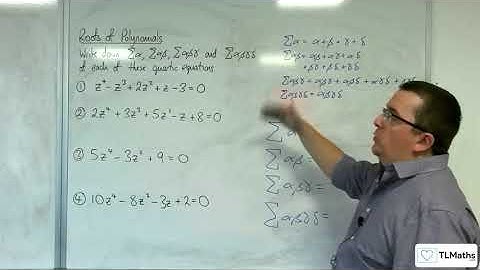 Roots of Polynomials
Write down Σα, Σαβ, Σαβγ and Σαβγδ
of each of these quartic equations
① z⁴ - z³ + 2z² + z - 3 = 0
② 2z⁴ + 3z³ + 5z² - z + 8 = 0
③ 5z⁴ - 3z² + 9 = 0
④ 10z⁴ - 8z² - 3z + 2 = 0
Σα = α + β + γ + δ
Σαβ = αβ + αγ + αδ
+ βγ + βδ + γδ
Σαβγ = αβγ + αβδ + αγδ +
Σαβγδ = αβγδ
Σα
Σαβ =
Σαβγ =
Σαβγδ =
TLMaths